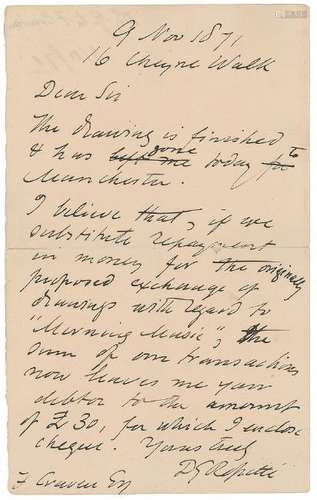 9 Nov 1871
16 Cheyne Walk
Dear Sir
The drawing is finished
& has left me gone today for to
Manchester.
I believe that, if we
substitute repayment
in money for the originally
proposed exchange of
drawings with regard to
"Morning Music", the
sum of our transactions
now leaves me your
debtor to the amount
of £30, for which I enclose
cheque. Yours truly
DGRossetti
F Craven Esq